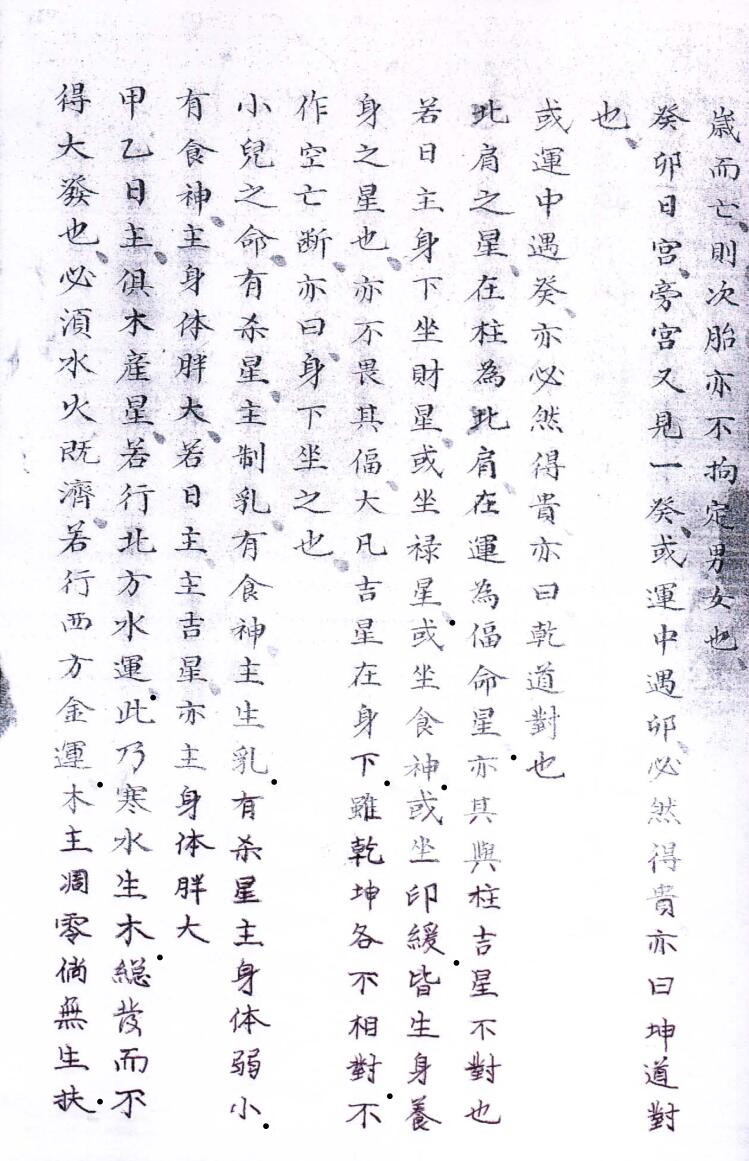 歲而亡則次胎亦不拘定男女也
癸卯日宮旁宮又見一癸或運中遇卯必然得貴亦曰坤道對
也
或運中遇癸亦必然得貴亦曰乾道對也
比肩之星在柱為比肩在運為偪命星亦其與柱吉星不對也
若日主身下坐財星或坐祿星或坐食神或坐印緩皆生身養
身之星也亦不畏其偪大凡吉星在身下雖乾坤各不相對不
作空亡断亦曰身下坐之也
小兒之命有杀星主制乳有食神主生乳有杀星主身体弱小
有食神主身体胖大若日主主吉星亦主身体胖大
甲乙日主俱木産星若行北方水運此乃寒水生木総發而不
得大發也必湏水火既濟若行西方金運木主凋零倘無生扶